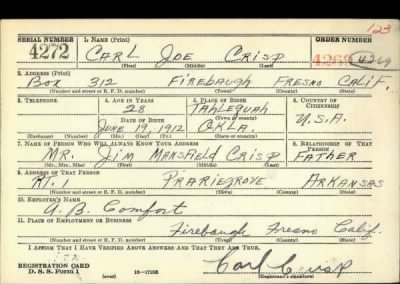 123
SERIAL NUMBER 1. NAME (Print) ORDER NUMBER
4272 CARL JOE CRISP 4269 4269
(First) (Middle) (Last)
2. ADDRESS (Print)
Box 312 FIREBAUGH FRESNO CALIF.
(Number and street or R. F. D. number) (Town) (County) (State)
3. TELEPHONE 4. AGE IN YEARS 5. PLACE OF BIRTH 6. COUNTRY OF CITIZENSHIP
28 TAHLEQUAH
DATE OF BIRTH (Town or county)
JUNE 19, 1912 OKLA. U.S.A.
(Exchange) (Number) (Mo.) (Day) (Yr.) (State or country)
7. NAME OF PERSON WHO WILL ALWAYS KNOW YOUR ADDRESS 8. RELATIONSHIP OF THAT PERSON
MR. JIM MANSFIELD CRISP FATHER
(Mr., Mrs., Miss) (First) (Middle) (Last)
9. ADDRESS OF THAT PERSON
RT. 1 PRARIEGROVE ARKANSAS
(Number and street or R. F. D. number) (Town) (County) (State)
10. EMPLOYER'S NAME
A. B. Comfort
11. PLACE OF EMPLOYMENT OR BUSINESS
Firebaugh Fresno Calif.
(Number and street or R. F. D. number) (Town) (County) (State)
I AFFIRM THAT I HAVE VERIFIED ABOVE ANSWERS AND THAT THEY ARE TRUE.
REGISTRATION CARD Carl Crisp
D. S. S. Form 1 (over) 16—17105 (Registrant's signature)